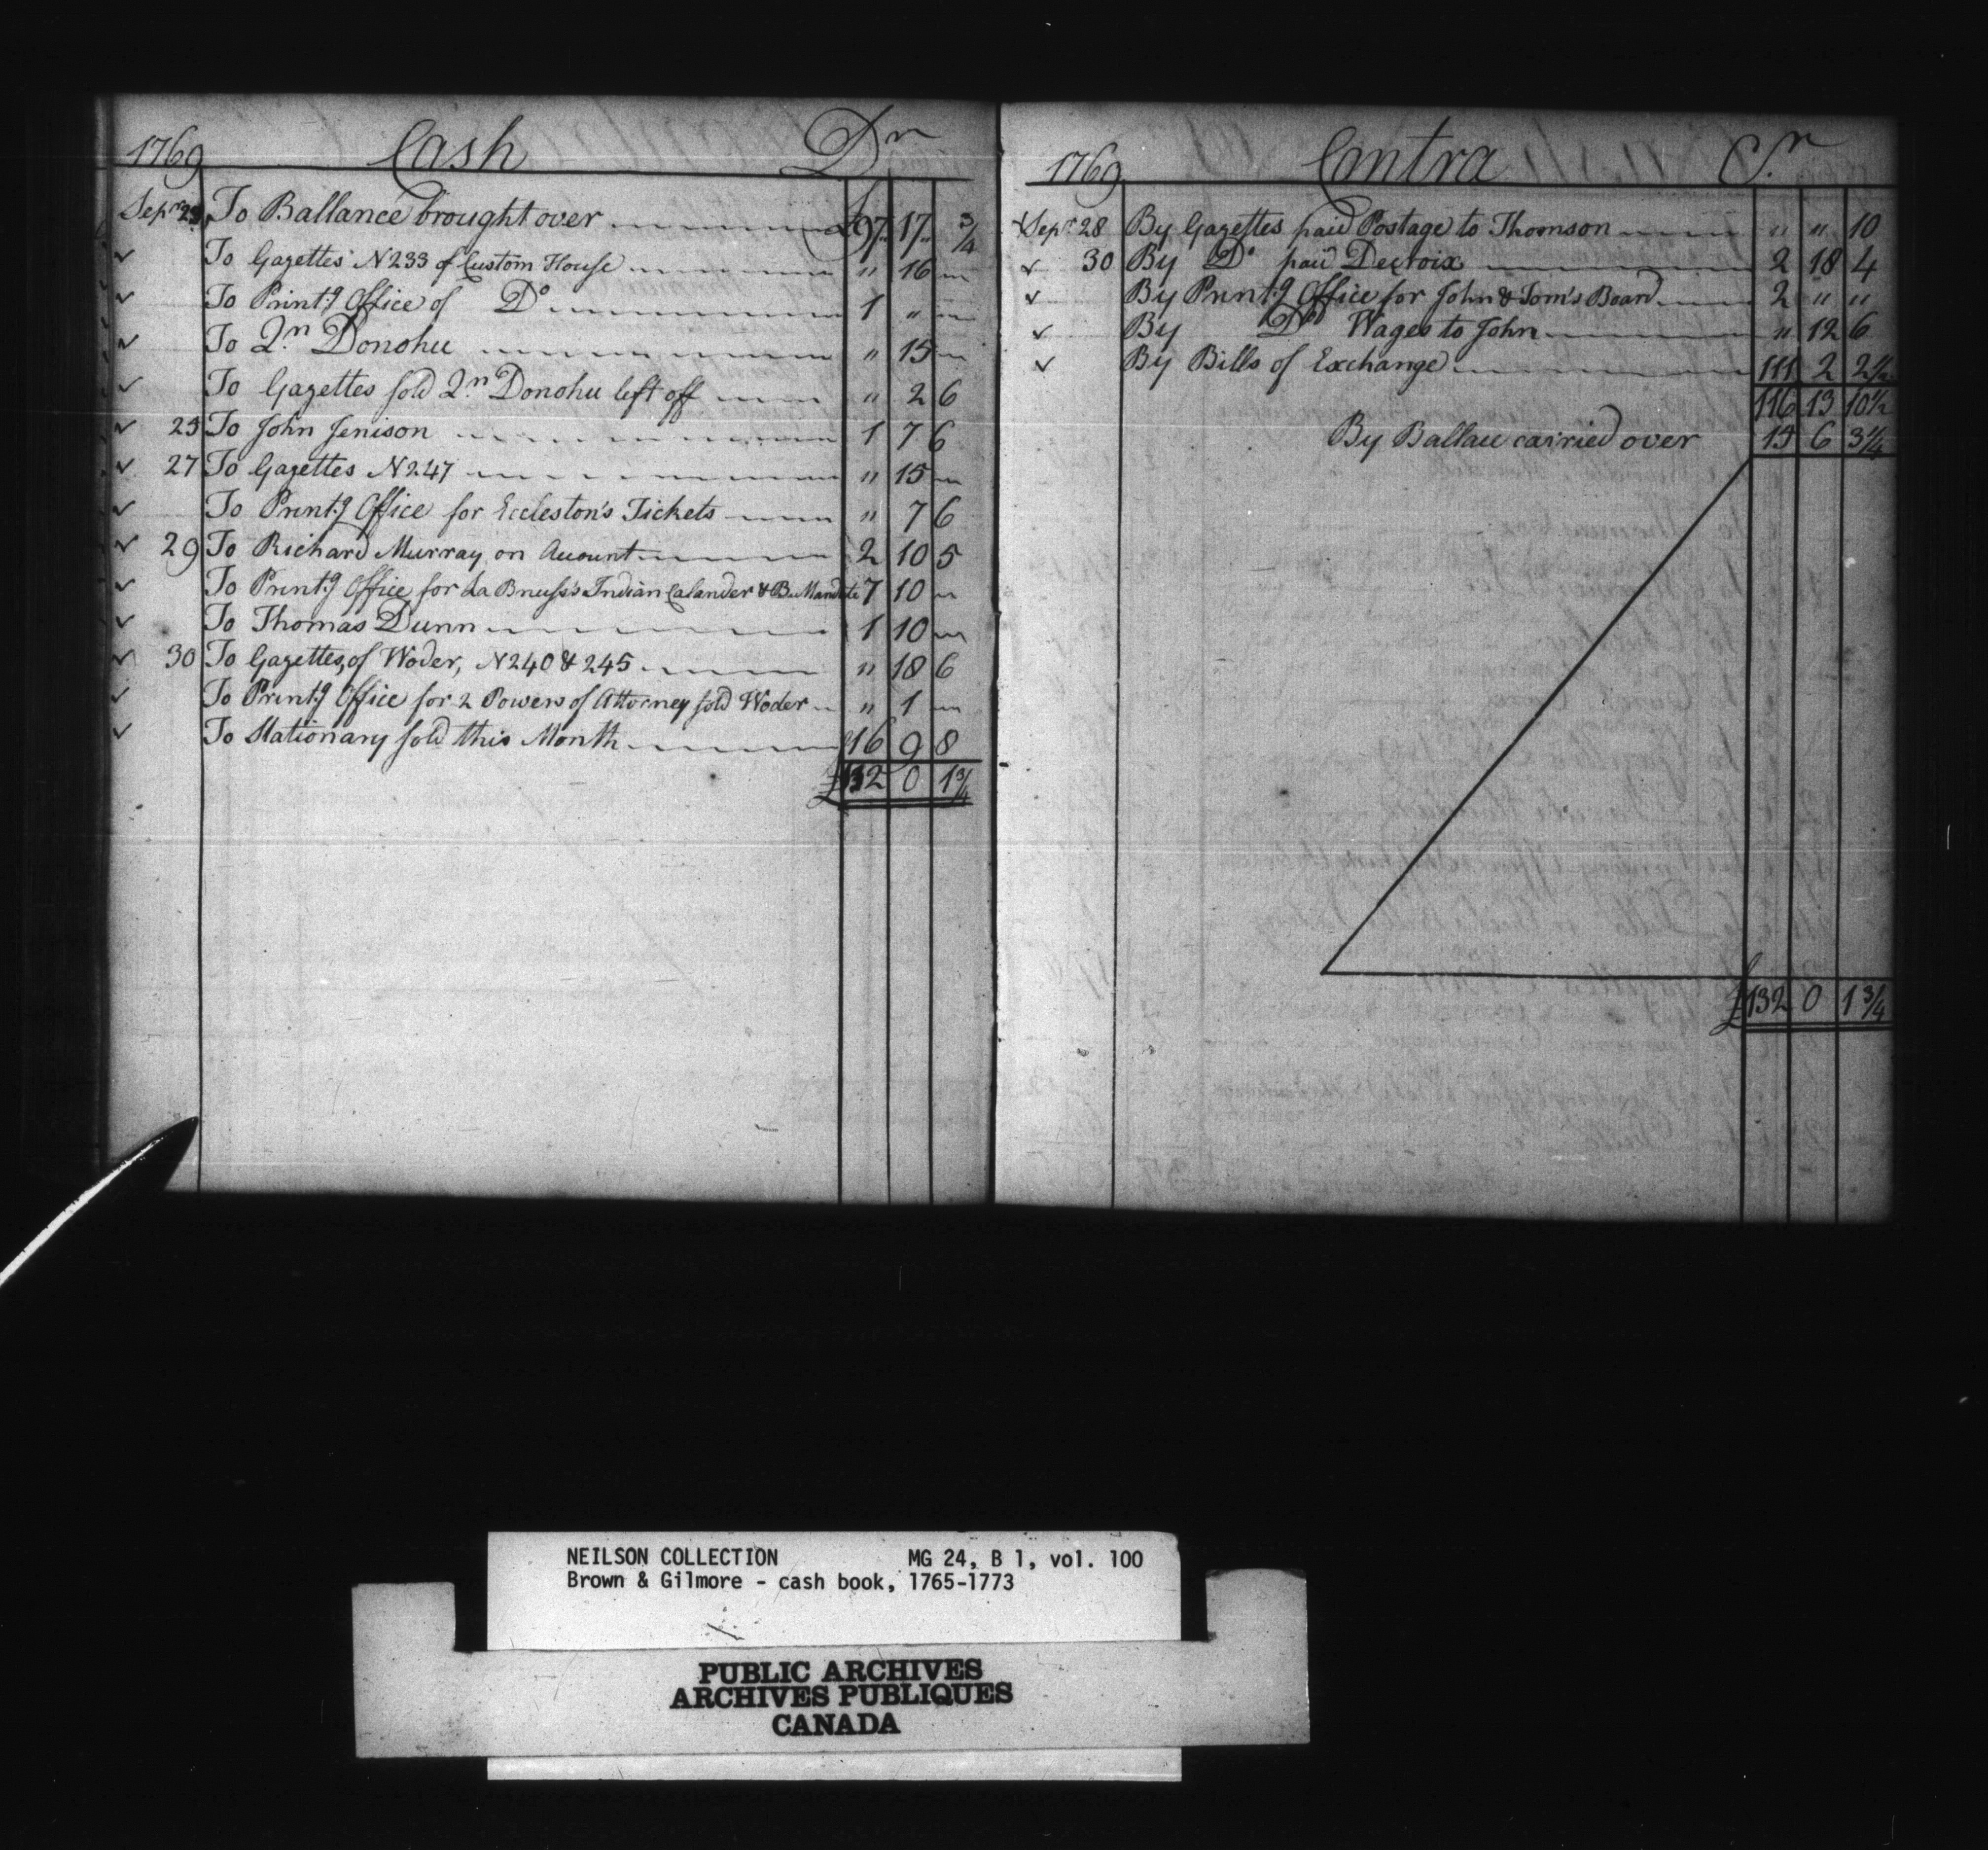 1769 Cash Dr
Sepr 23 To Ballance brought over £97 17 ¾
To Gazettes N233 of Custom House " 16 "
To Print.g Office of Do 1 " "
To Qn Donohu " 15 "
To Gazettes sold Qn Donohu left off " 2 6
25 To John Jenison 1 7 6
27 To Gazettes N247 " 15 "
To Print.g Office for Eccleston's Tickets " 7 6
29 To Richard Murray on Acount 2 10 5
To Print.g Office for La Bruess's Indian Calander & B. Mandate 7 10 "
To Thomas Dunn 1 10 "
30 To Gazettes, of Woder, N240 & 245 " 18 6
To Print.g Office for 2 Powers of Attorney sold Woder " 1 "
To Stationary sold this Month 16 9 8
£132 0 1¾
1769 Contra Cr
Sepr 28 By Gazettes paid Postage to Thomson " " 10
30 By Do paid Decroix 2 18 4
By Print.g Office for John & Tom's Board 2 " "
By Do Wages to John " 12 6
By Bills of Exchange 111 2 2½
116 13 10½
By Ballace carried over 15 6 3¼
£132 0 1¾
NEILSON COLLECTION MG 24, B 1, vol. 100
Brown & Gilmore - cash book, 1765-1773
PUBLIC ARCHIVES
ARCHIVES PUBLIQUES
CANADA